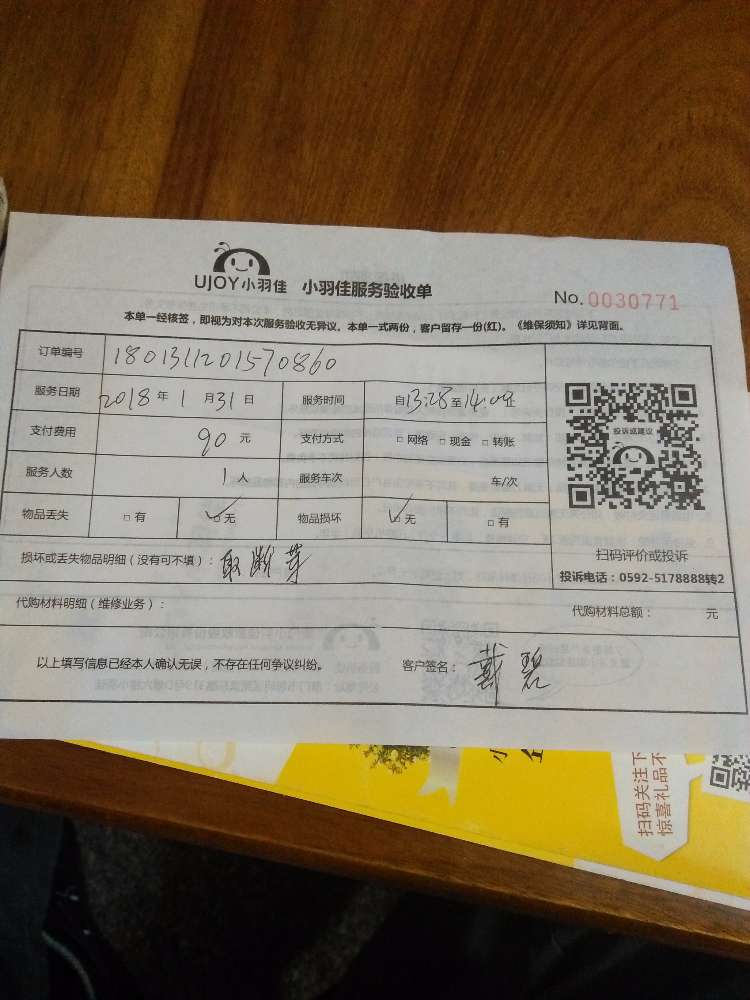 UJOY小羽佳 小羽佳服务验收单 No. 0030771
本单一经核签，即视为对本次服务验收无异议。本单一式两份，客户留存一份(红)。《维保须知》详见背面。
订单编号 1801311201570860
服务日期 2018 年 1 月 31 日 服务时间 自13:28至14:08止
支付费用 90 元 支付方式 □ 网络 □ 现金 □ 转账
服务人数 1 人 服务车次 车/次
物品丢失 □ 有 ☑ 无 物品损坏 ☑ 无 □ 有
投诉或建议
扫码评价或投诉
投诉电话：0592-5178888转2
损坏或丢失物品明细（没有可不填）：
代购材料明细（维修业务）： 代购材料总额： 元
以上填写信息已经本人确认无误，不存在任何争议纠纷。 客户签名： 戴碧
扫码关注下
惊喜礼品不